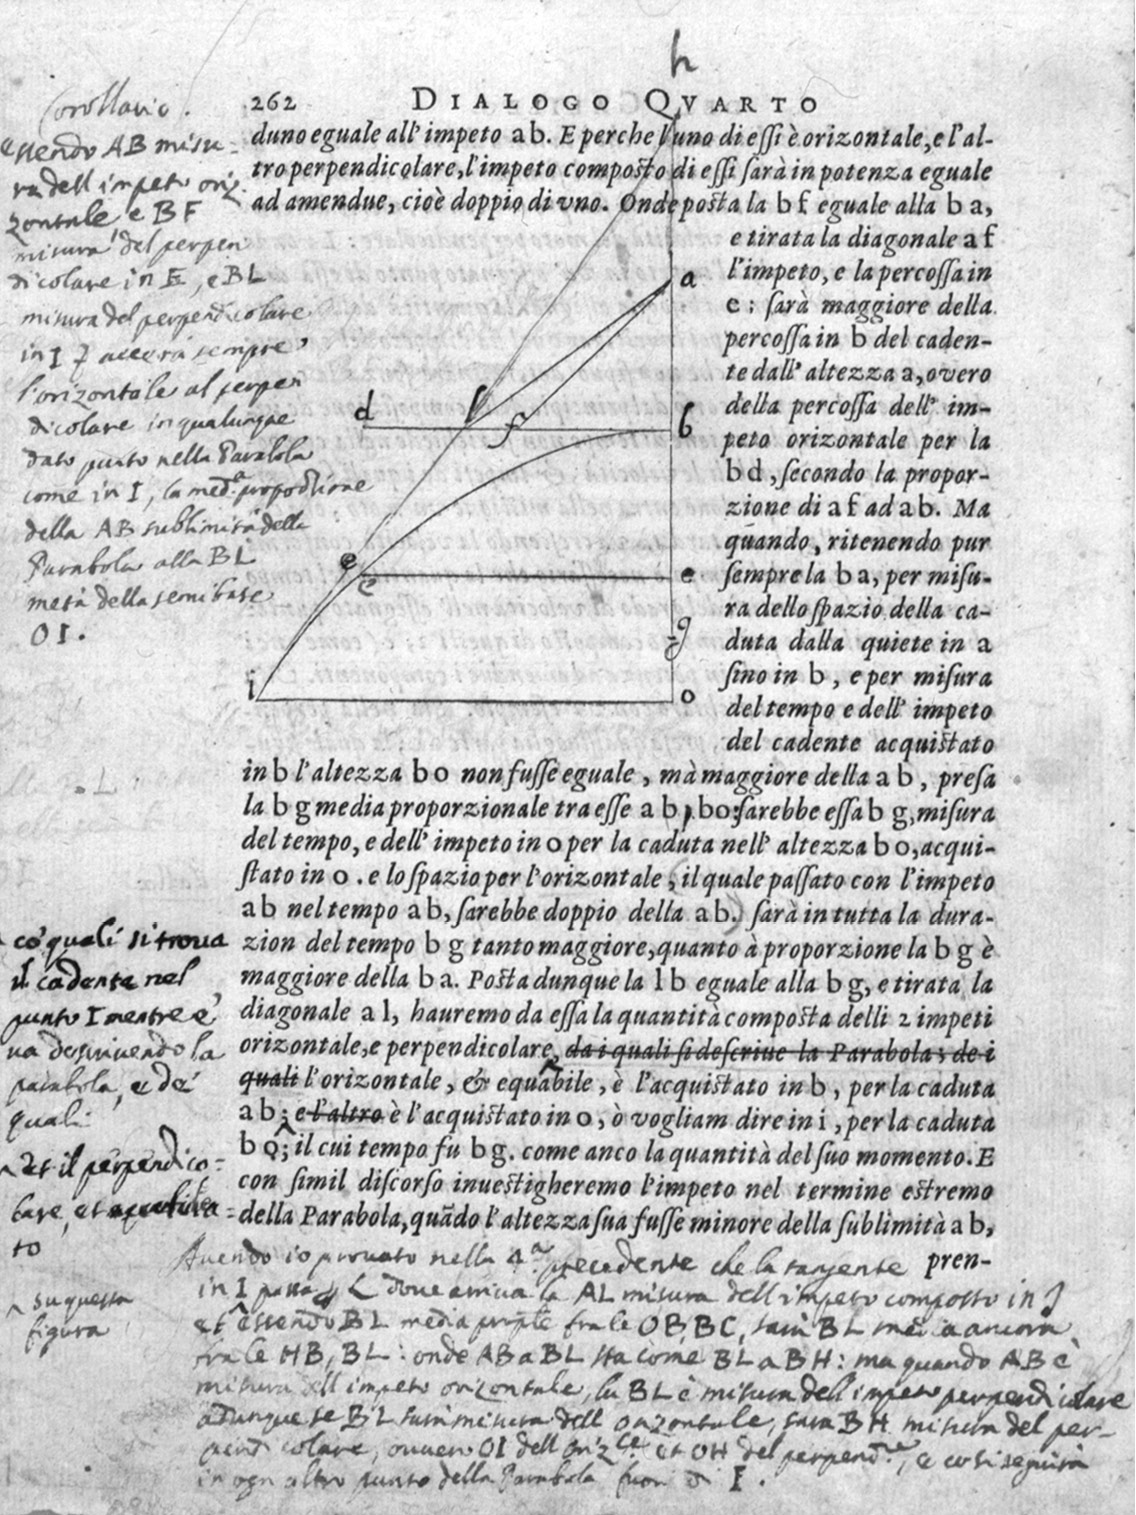 h
262 DIALOGO QVARTO
duno eguale all' impeto ab. E perche l'uno di essi è orizontale, e l'al-
tro perpendicolare, l'impeto composto di essi sarà in potenza eguale
ad amendue, cioè doppio di vno. Onde posta la bf eguale alla ba,
e tirata la diagonale af
l'impeto, e la percossa in
e: sarà maggiore della
percossa in b del caden-
te dall' altezza a, overo
della percossa dell' im-
peto orizontale per la
bd, secondo la propor-
zione di af ad ab. Ma
quando, ritenendo pur
sempre la ba, per misu-
ra dello spazio della ca-
duta dalla quiete in a
sino in b, e per misura
del tempo e dell' impeto
del cadente acquistato
in b l'altezza bo non fusse eguale, mà maggiore della ab, presa
la bg media proporzionale tra esse ab, bo: sarebbe essa bg, misura
del tempo, e dell' impeto in o per la caduta nell' altezza bo, acqui-
stato in o. e lo spazio per l'orizontale, il quale passato con l'impeto
ab nel tempo ab, sarebbe doppio della ab. sarà in tutta la dura-
zion del tempo bg tanto maggiore, quanto à proporzione la bg è
maggiore della ba. Posta dunque la lb eguale alla bg, e tirata la
diagonale al, hauremo da essa la quantità composta delli 2 impeti
orizontale, e perpendicolare, da i quali si descriue la Parabola; de i
quali l'orizontale, & equabile, è l'acquistato in b, per la caduta
ab; e l'altro è l'acquistato in o, ò vogliam dire in i, per la caduta
bo; il cui tempo fu bg. come anco la quantità del suo momento. E
con simil discorso inuestigheremo l'impeto nel termine estremo
della Parabola, quãdo l'altezza sua fusse minore della sublimità ab,
pren-
a
d l f b
e e e
g
i o
Corollario.
essendo AB misu=
ra dell impeto oriz
zontale e BF
misura del perpen
dicolare in E, e BL
misura del perpendicolare
in I sempre
l'orizontale al perpen
dicolare in qualunque
dato punto nella Parabola
come in I, la med.a proporzione
della AB sublimità della
Parabola alla BL
metà della semibase
OI.
co' quali si trova
il cadente nel
punto I mentre e'
va descrivendo la
parabola, e de'
quali
et il perpendico=
lare, et
to
su questa
figura
Avendo io provato nella 4.a precedente che la tangente
in I passa L dove arriva la AL misura dell impeto composto in I
et essendo BL media fra le OB, BC, sarà BL media ancora
fra le HB, BL: onde AB a BL sta come BL a BH: ma quando AB è
misura dell impeto orizontale, la BL è misura dell impeto perpendicolare
adunque se BL sarà misura dell orizontale, sarà BH misura del per-
pendicolare, ovvero OI dell oriz.le et OH del perpend.re, e così seguirà
in ogn altro punto della Parabola fuori d I.